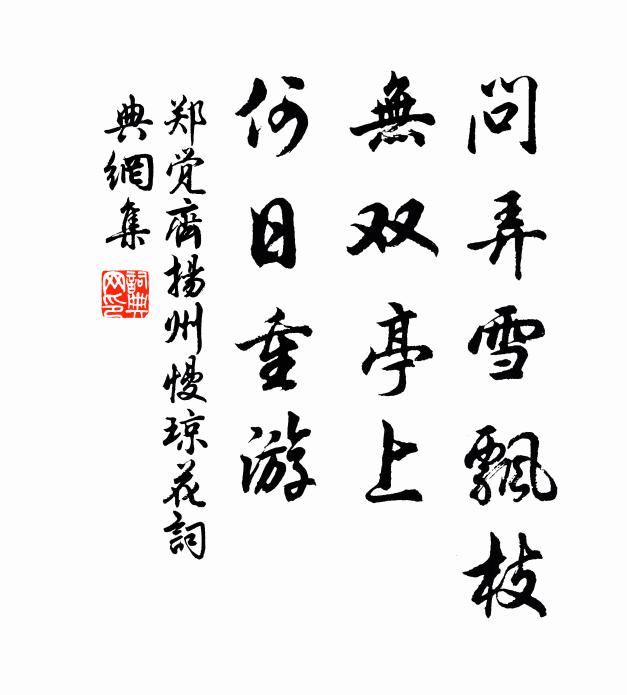 問弄雪飄枝
無双亭上
何日重游
郑觉齋揚州慢琼花詞
典網集
詞典
网印